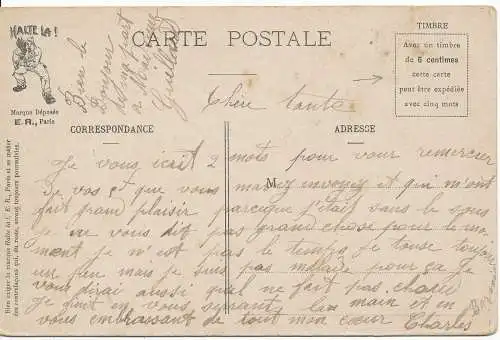 HALTE LA !
Marque Déposée
E. R., Paris
CARTE POSTALE
TIMBRE
Avec un timbre
de 5 centimes
cette carte
peut être expédiée
avec cinq mots
CORRESPONDANCE
ADRESSE
M
Bien le
Bonjour
de ma part
a
Guillaume
Chère tante
Je vous ecrit 2 mots pour vous remercier
de vos que vous mavez envoyés et qui m'ont
fait grand plaisir parceque j'étais dans le sous
je ne vous dit pas grand chose pour le mo-
ment je n'est pas le temps je tousse toujours
un peu mais je suis pas malade pour ça je
vous dirai aussi quel ne fait pas chaud
je finit en vous serrant la main et en
vous embraisant de tout mon cœur Charles
Bien exiger la marque Halte là ! E. R., Paris et se méfier
des contrefaçons qui, du reste, seront toujours poursuivies.